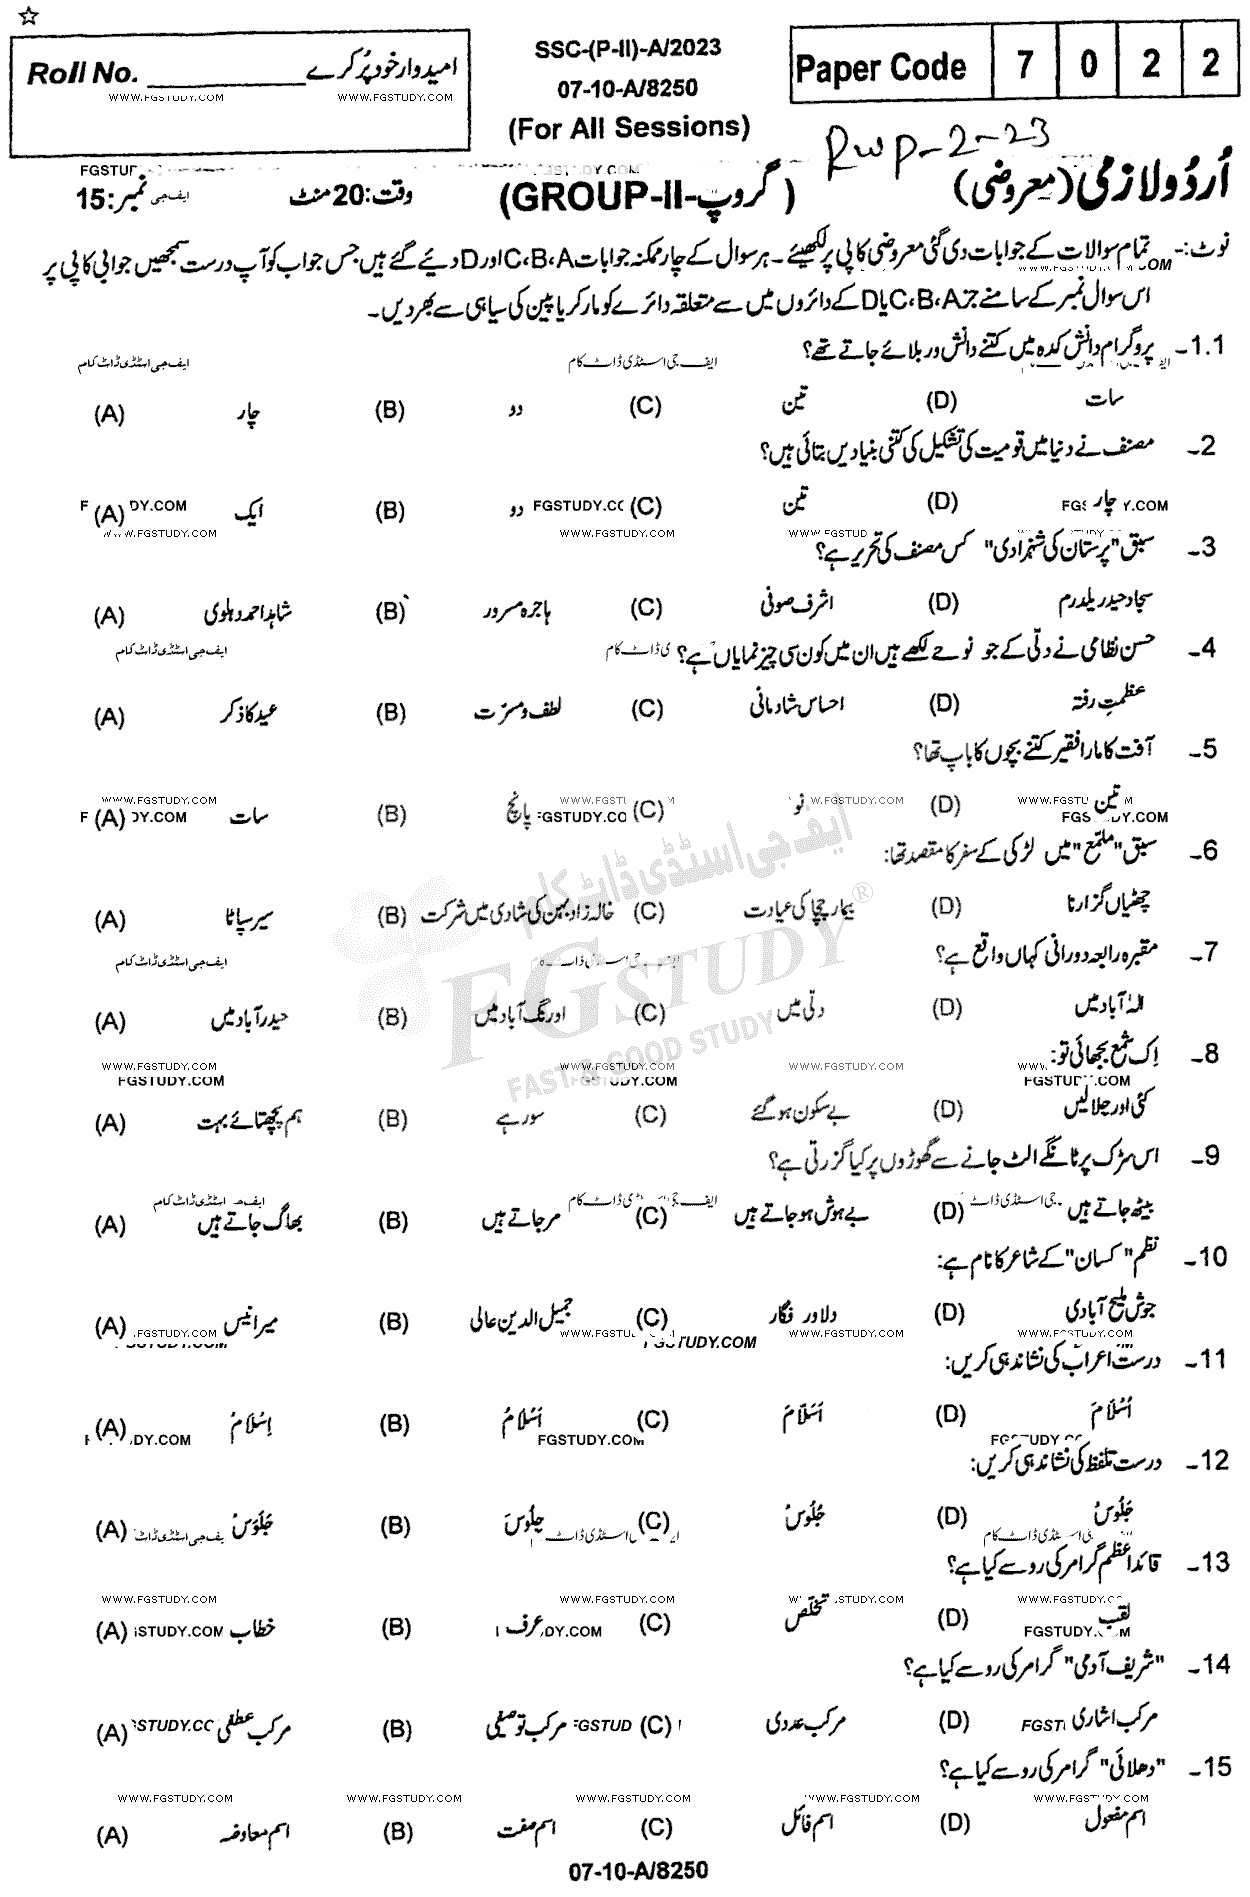 ☆
Roll No. ____________ امیدوار خود پُر کرے
WWW.FGSTUDY.COM WWW.FGSTUDY.COM
SSC-(P-II)-A/2023
07-10-A/8250
(For All Sessions)
Paper Code 7 0 2 2
RWP-2-23
اُردُو لازمی (معروضی) (گروپ-GROUP-II) وقت: 20 منٹ نمبر: 15
نوٹ:- تمام سوالات کے جوابات دی گئی معروضی کاپی پر لکھیئے۔ ہر سوال کے چار ممکنہ جوابات C،B،A اور D دئیے گئے ہیں جس جواب کو آپ درست سمجھیں جوابی کاپی پر
اس سوال نمبر کے سامنے جز C،B،A یا D کے دائروں میں سے متعلقہ دائرے کو مارکر یا پین کی سیاہی سے بھر دیں۔
1.1۔ پروگرام دانش کدہ میں کتنے دانش ور بلائے جاتے تھے؟
ایف جی اسٹڈی ڈاٹ کام ایف جی اسٹڈی ڈاٹ کام
سات (D) تین (C) دو (B) چار (A)
2۔ مصنف نے دنیا میں قومیت کی تشکیل کی کتنی بنیادیں بتائی ہیں؟
چار (D) تین (C) دو (B) ایک (A)
3۔ سبق "پرستان کی شہزادی" کس مصنف کی تحریر ہے؟
سجاد حیدر یلدرم (D) اشرف صبوحی (C) ہاجرہ مسرور (B) شاہد احمد دہلوی (A)
4۔ حسن نظامی نے دلّی کے جو نوحے لکھے ہیں ان میں کون سی چیز نمایاں ہے؟
عظمتِ رفتہ (D) احساس شادمانی (C) لطف و مسرت (B) عید کا ذکر (A)
5۔ آفت کا مارا فقیر کتنے بچوں کا باپ تھا؟
تین (D) نو (C) پانچ (B) سات (A)
6۔ سبق "ملمع" میں لڑکی کے سفر کا مقصد تھا:
چھٹیاں گزارنا (D) بیمار چچا کی عیادت (C) خالہ زاد بہن کی شادی میں شرکت (B) سیر سپاٹا (A)
ایف جی اسٹڈی ڈاٹ کام
FG STUDY ®
FAST & GOOD STUDY
7۔ مقبرہ رابعہ دورانی کہاں واقع ہے؟
الہٰ آباد میں (D) دلّی میں (C) اورنگ آباد میں (B) حیدرآباد میں (A)
8۔ اِک شمع بجھائی تو:
کئی اور جلا لیں (D) بے سکون ہو گئے (C) سو رہے (B) ہم پچھتائے بہت (A)
9۔ اس سڑک پر ٹانگے الٹ جانے سے گھوڑوں پر کیا گزرتی ہے؟
بیٹھ جاتے ہیں (D) بے ہوش ہو جاتے ہیں (C) مر جاتے ہیں (B) بھاگ جاتے ہیں (A)
10۔ نظم "کسان" کے شاعر کا نام ہے:
جوش ملیح آبادی (D) دلاور فگار (C) جمیل الدین عالی (B) میر انیس (A)
11۔ درست اعراب کی نشاندہی کریں:
اُسْلَامَ (D) اَسْلَامَ (C) اَسْلَامُ (B) اِسْلَامُ (A)
12۔ درست تلفظ کی نشاندہی کریں:
جَلُوسُ (D) جُلُوسُ (C) جِلُوسَ (B) جَلَوَسُ (A)
13۔ قائداعظم گرامر کی رو سے کیا ہے؟
لقب (D) تخلص (C) عرف (B) خطاب (A)
14۔ "شریف آدمی" گرامر کی رو سے کیا ہے؟
مرکب اشاری (D) مرکب عددی (C) مرکب توصیفی (B) مرکب عطفی (A)
15۔ "دھلائی" گرامر کی رو سے کیا ہے؟
WWW.FGSTUDY.COM WWW.FGSTUDY.COM WWW.FGSTUDY.COM WWW.FGSTUDY.COM WWW.FGSTUDY.COM
اسم مفعول (D) اسم فائل (C) اسم صفت (B) اسم معاوضہ (A)
07-10-A/8250